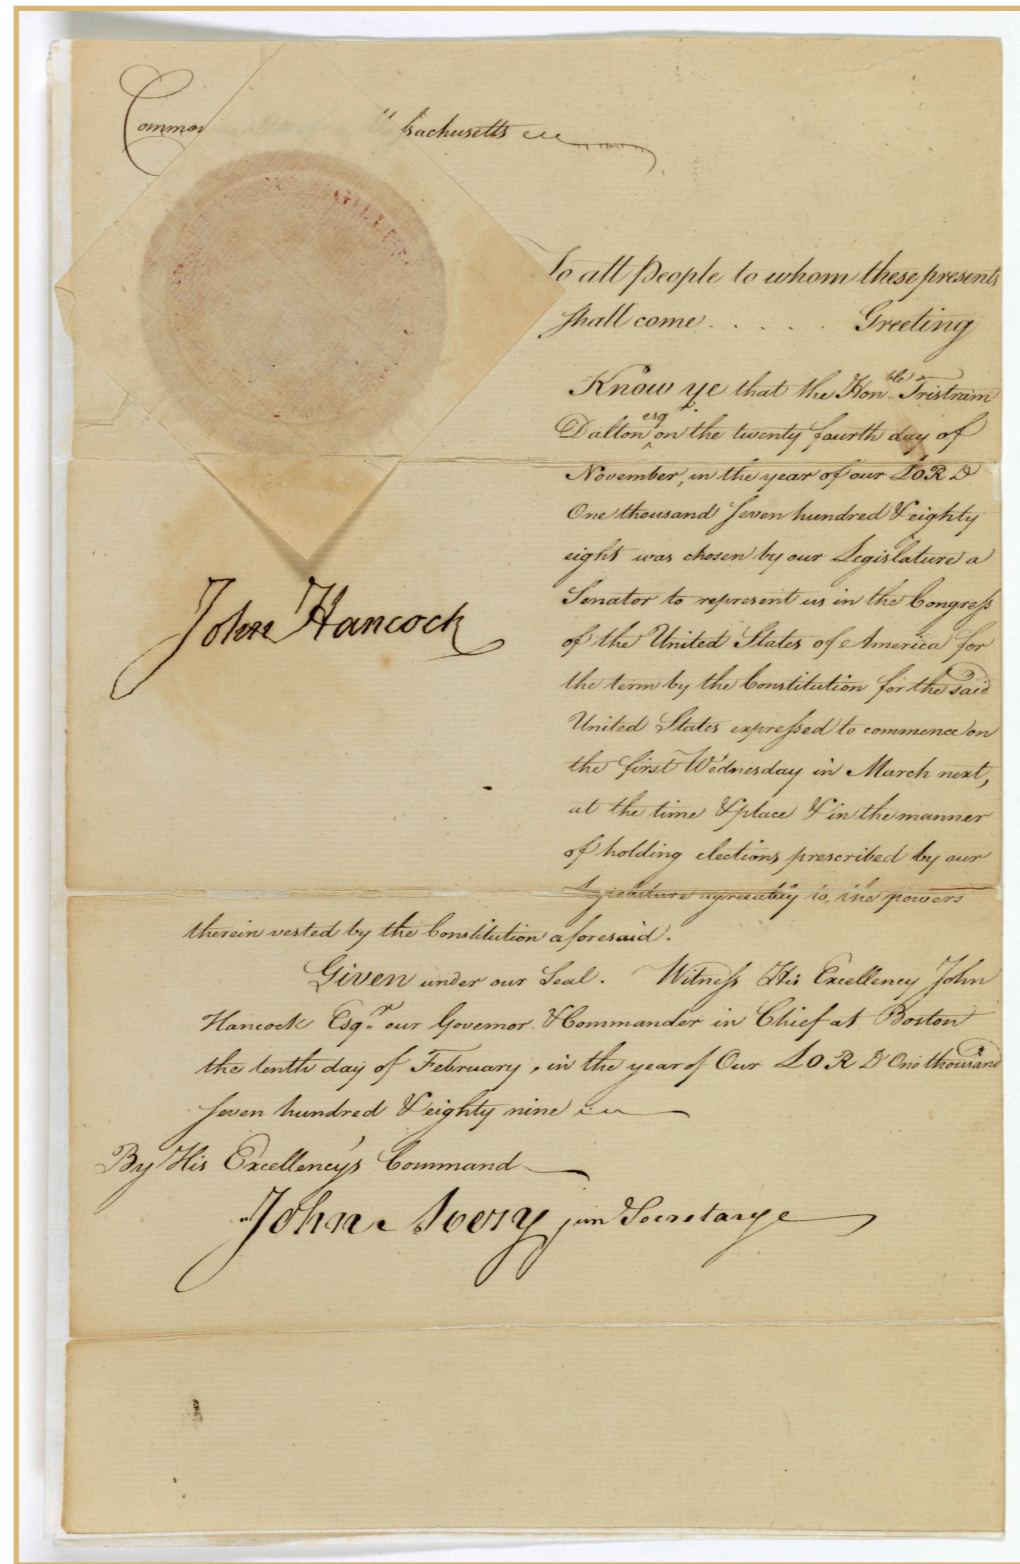 Common sachusetts
To all People to whom these presents
shall come . . . . . Greeting
Know ye that the Hon.ble Tristram
Dalton esqr. on the twenty fourth day of
November, in the year of our LORD
One thousand Seven hundred & eighty
eight was chosen by our Legislature a
Senator to represent us in the Congress
of the United States of America for
the term by the Constitution for the said
United States expressed to commence on
the first Wednesday in March next,
at the time & place & in the manner
of holding elections prescribed by our
Legislature agreeably to the powers
therein vested by the Constitution aforesaid.
Given under our Seal. Witness His Excellency John
Hancock Esqr. our Governor & Commander in Chief at Boston
the tenth day of February, in the year of Our LORD One thousand
Seven hundred & eighty nine
John Hancock
By His Excellency's Command
John Avery jun Secretary